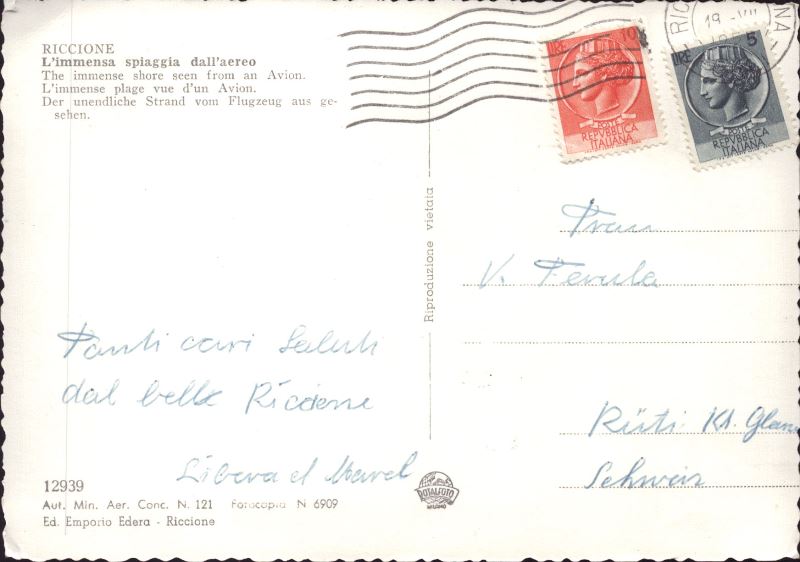 RICCIONE
L'immensa spiaggia dall'aereo
The immense shore seen from an Avion.
L'immense plage vue d'un Avion.
Der unendliche Strand vom Flugzeug aus ge-
sehen.
LIRE 10
POSTE
REPVBBLICA
ITALIANA
LIRE 5
POSTE
REPVBBLICA
ITALIANA
19 VII
Riproduzione vietata
Frau
V. Ferula
Tanti cari Saluti
dal bella Riccione
Rüti Kt. Glarus
Schweiz
12939
Aut. Min. Aer. Conc. N. 121 Fotocopia N 6909
Ed. Emporio Edera - Riccione
ROTALFOTO
MILANO